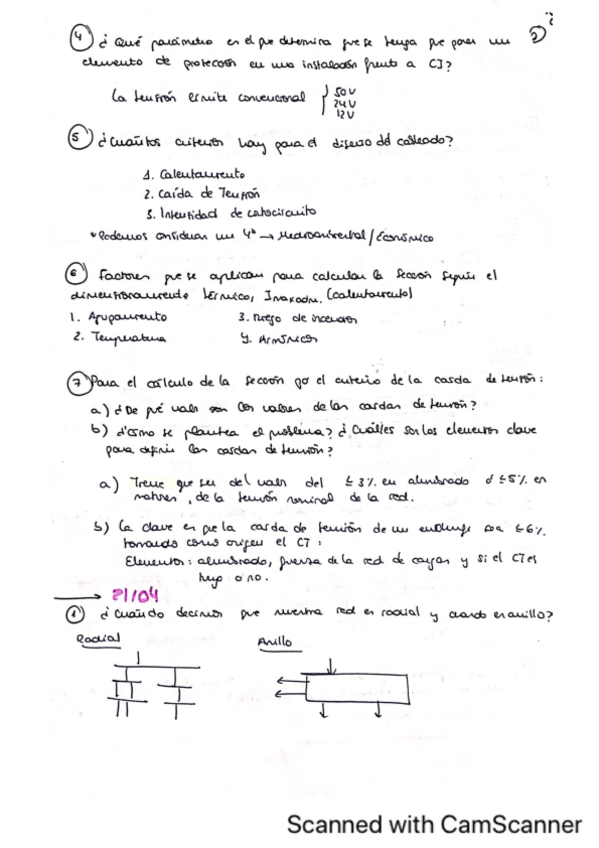 2
④ ¿Qué parámetro es el que determina que se tenga que poner un
elemento de protección en una instalación frente a CI?
La tensión límite convencional } 50V
24V
12V
⑤ ¿Cuántos criterios hay para el diseño del cableado?
1. Calentamiento
2. Caída de Tensión
3. Intensidad de cortocircuito
* Podemos considerar un 4º → Medioambiental / Económico
⑥ Factores que se aplican para calcular la sección según el
dimensionamiento térmico, Imaxadm. (calentamiento)
1. Agrupamiento 3. riesgo de incendio
2. Temperatura 4. Armónicos
⑦ Para el cálculo de la sección por el criterio de la caída de tensión:
a) ¿De qué valor son los valores de las caídas de tensión?
b) ¿Cómo se plantea el problema? ¿Cuáles son los elementos clave
para definir las caídas de tensión?
a) Tiene que ser del valor del ≤3% en alumbrado ó ≤5% en
motores, de la tensión nominal de la red.
b) La clave es que la caída de tensión de un enchufe sea ≤6%
tomando como origen el CT:
Elementos: alumbrado, fuerza de la red de cargas y si el CT es
tuyo o no.
→ 21/04
① ¿Cuándo decimos que nuestra red es radial y cuando en anillo?
Radial Anillo
Scanned with CamScanner